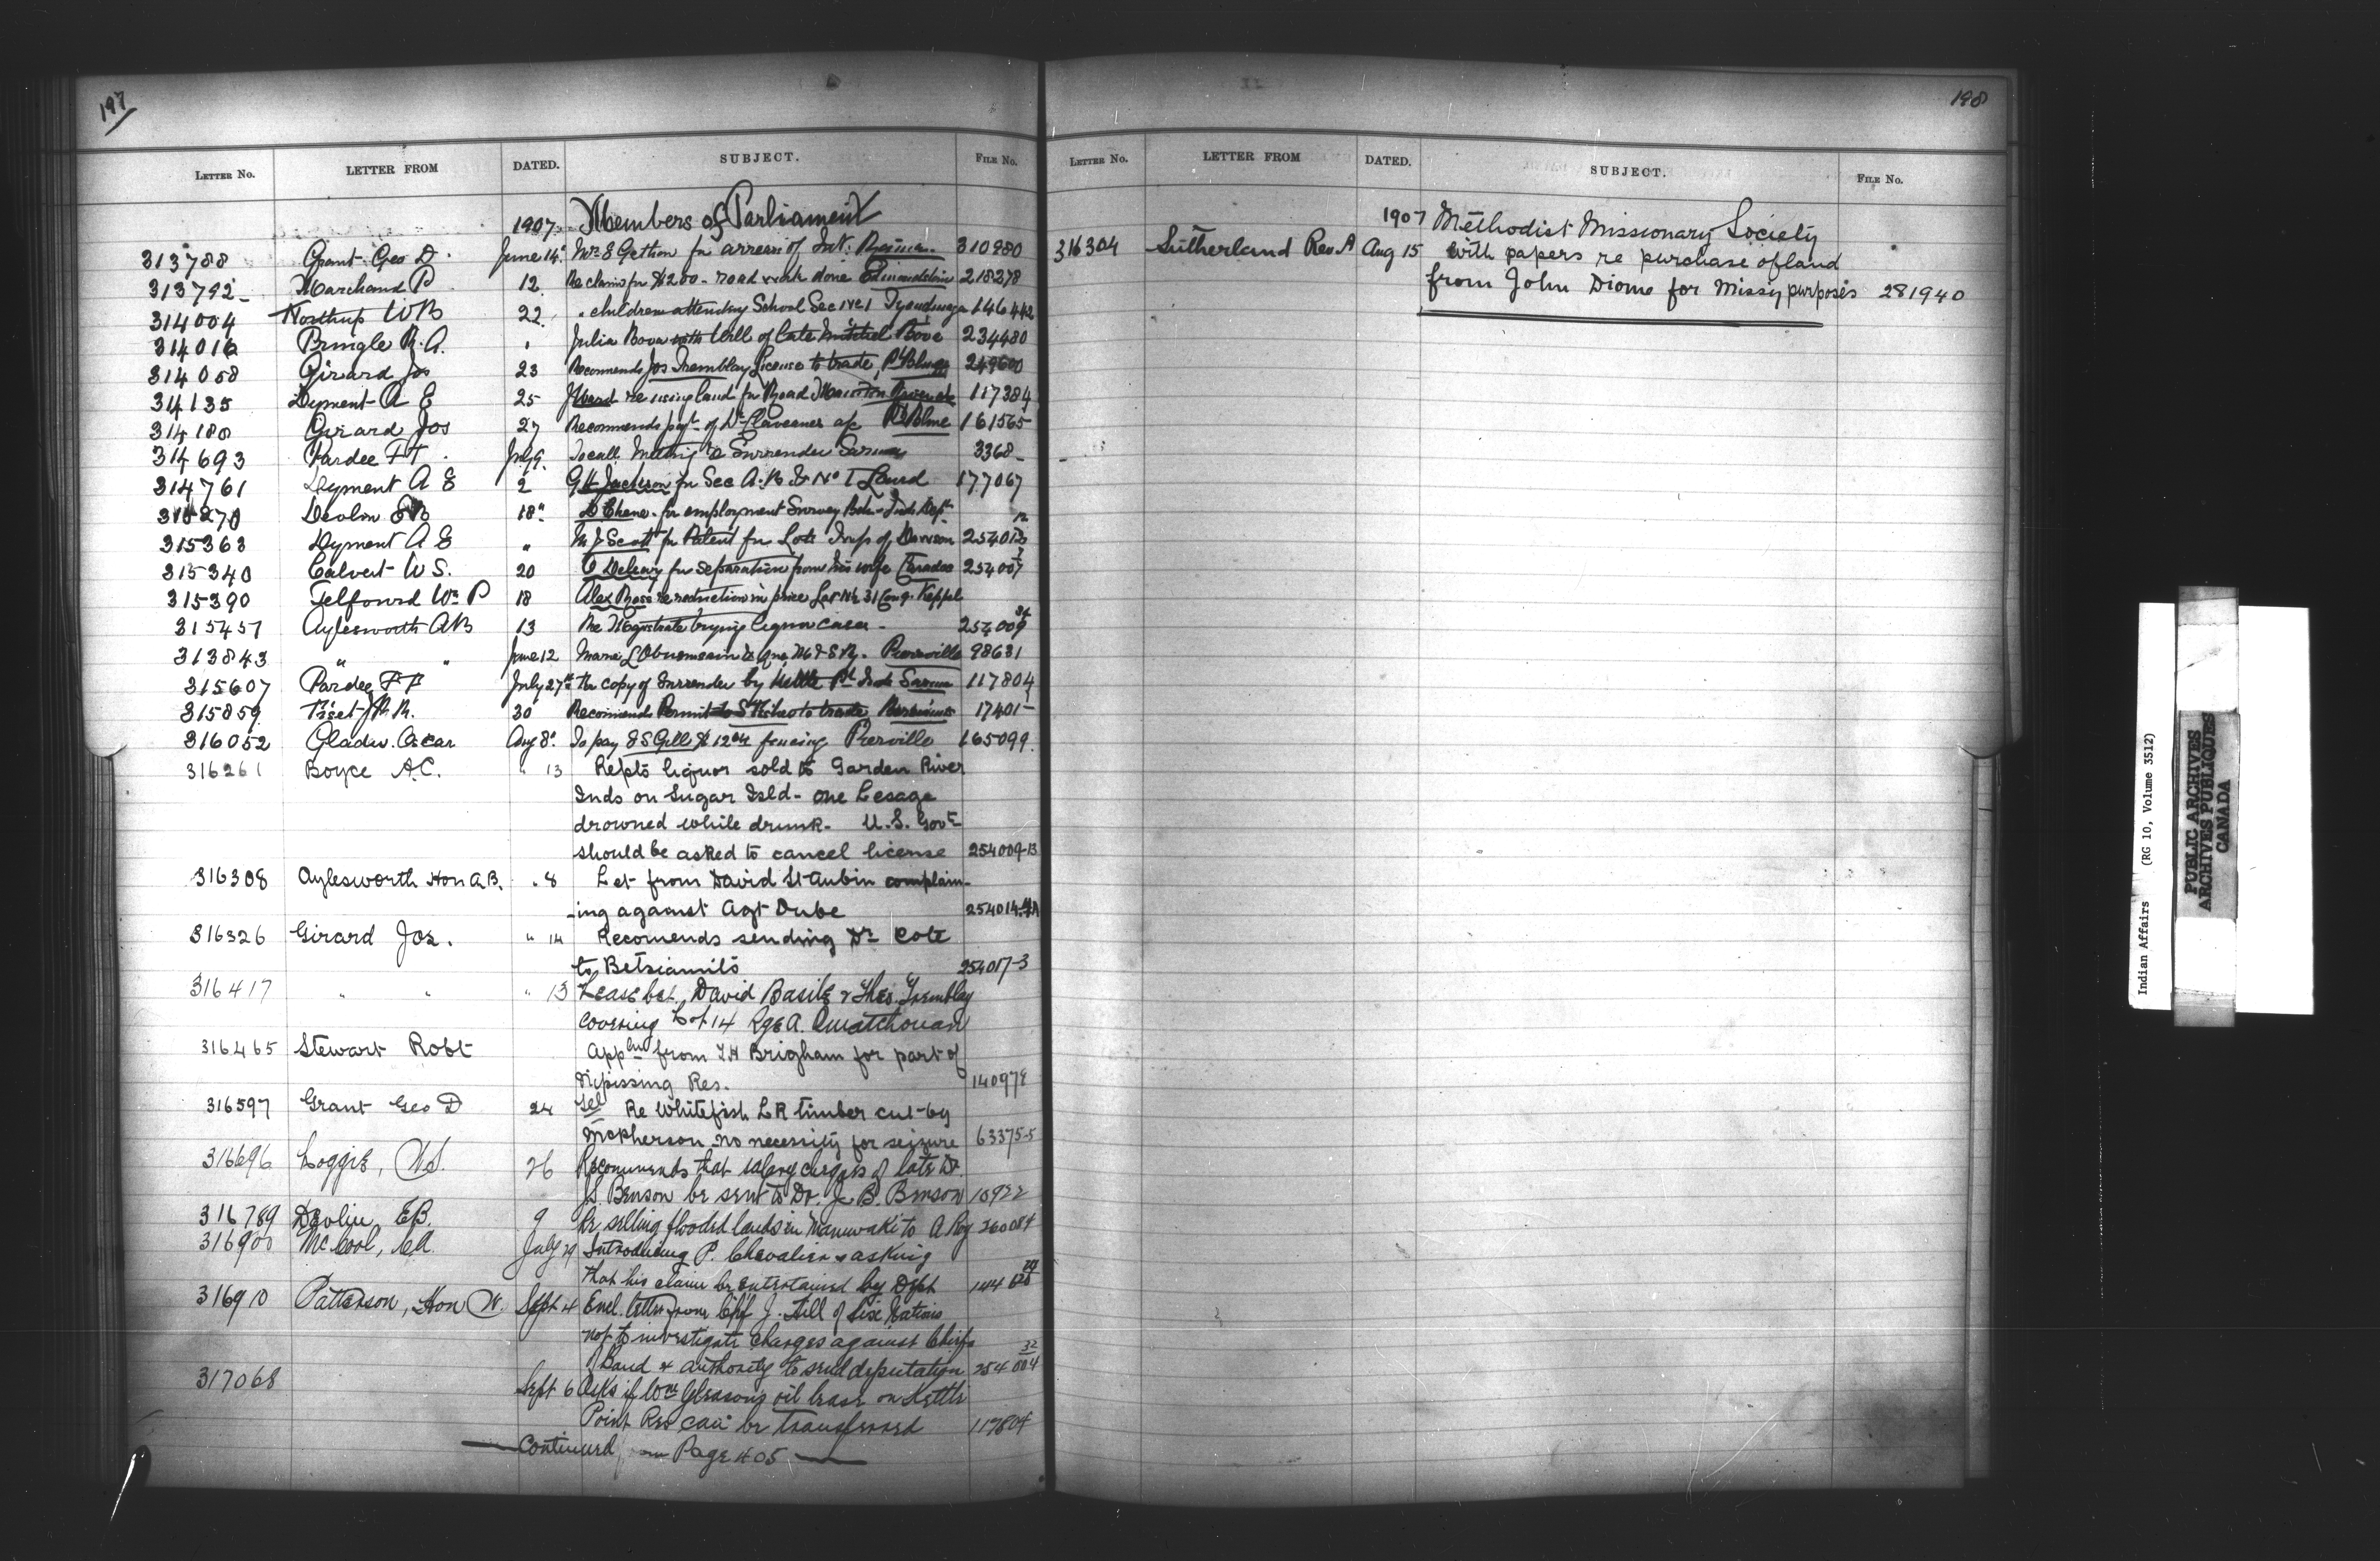 197
LETTER NO. LETTER FROM DATED. SUBJECT. FILE NO.
1907. Members of Parliament
313788 Grant Geo D. June 14 Wm E Gethon for arrears of Int. 310880
313792 Marchand P 12 Re claim for $200 - road work done 218278
314004 Northup WB 22 " children attending School Sec No 1 Tyendinaga 146442
314016 Pringle R.A. " Julia Bova with Will of late Mitchel Bova 234480
314058 Girard Jos 23 Recommends Jos Tremblay License to trade 249600
314135 Dyment A E 25 Ward re using land for Road 117384
314180 Girard Jos 27 Recommends payt of Dr a/c 161565
314693 Pardee F F July 9 To call Meeting to Surrender Sarnia 3368
314761 Dyment A E 2 G H Jackson for Sec A.B & No 1 Laird 177067
Devlin EB 18 D Chene for employment Survey Bch - Inds Dept
315363 Dyment A E " M J Scott for Patent for Lots Twp of Dawson 254013
315340 Calvert W S. 20 for separation from his wife Caradoc 254007
315390 Telford Wm P 18 Alex Ross re reduction in price Lot 31 Con 9 Keppel
315457 Aylesworth AB 13 Re Magistrate trying liquor cases - 254009 34
313843 " " June 12 Marie Pierreville 98631
315607 Pardee F F July 27th the copy of Surrender by Kettle Pt Inds Sarnia 117804
315859 30 Recommends Permit to trade Bersimis 17401-1
316052 Gladu Oscar Aug 8 To pay J S Gill $12 fencing Pierville 165099
316261 Boyce A.C. " 13 Repts liquor sold to Garden River
Inds on Sugar Isld - one Lesage
drowned while drunk - U.S. Govt
should be asked to cancel license 254009-13
316308 Aylesworth Hon A.B. " 8 Let from David St Aubin complain-
-ing against Agt Dube 254014
316326 Girard Jos. " 14 Recomends sending Dr Cote
to Betsiamits 254017-3
316417 " " " 13 Lease bet. David Basile & Thes. Tremblay
covering Lot 14 Rge A. Ouiatchouan
316465 Stewart Robt Appln from T H Brigham for part of
Nipissing Res. 140978
316597 Grant Geo D 24 Tel Re Whitefish L R timber cut by
McPherson no necessity for seizure 63375-5
316696 Loggie, W.S. 26 Recommends that salary of late Dr.
J.S. Benson be sent to Dr. J. B. Benson 10922
316789 Devlin, E.B. 9 Re selling flooded lands in Maniwaki to A Roy 260084
316900 McCool, C.A. July 29 Introducing P. Chevalier & asking
that his claim be entertained by Dept
316910 Patterson, Hon W. Sept 4 Encl. letter from Chf J. Hill of Six Nations
not to investigate charges against Chiefs
of Band & authority to send deputation 254004 32
317068 Sept 6 Asks if Wm Gleason's oil lease on Kettle
Point Res can be transferred 117804
Continued on Page 405
198
LETTER NO. LETTER FROM DATED. SUBJECT. FILE NO.
1907 Methodist Missionary Society
316304 Sutherland Rev A Aug 15 With papers re purchase of land
from John Diome for Missy purposes 281940
Indian Affairs (RG 10, Volume 3512)
PUBLIC ARCHIVES
ARCHIVES PUBLIQUES
CANADA